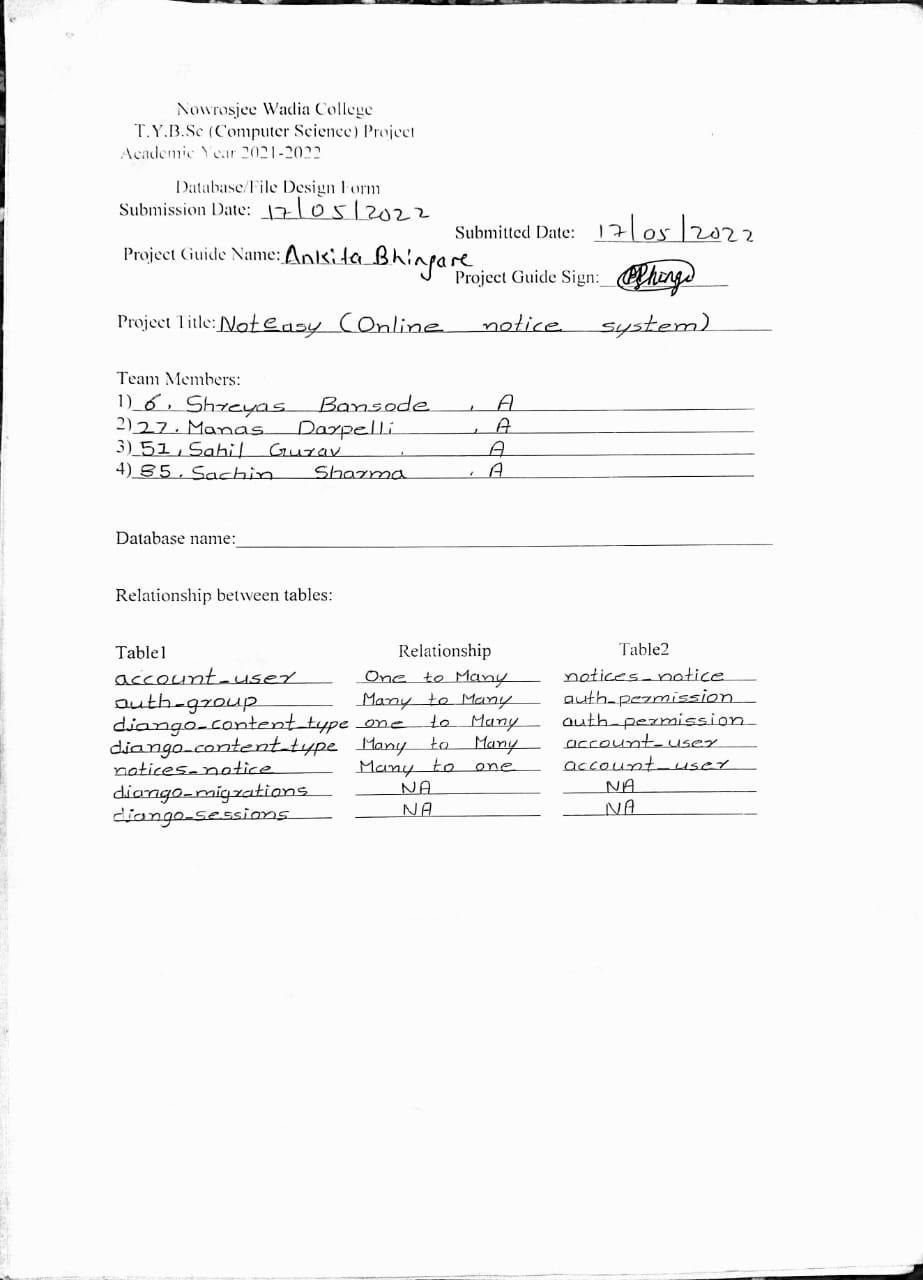 Nowrosjee Wadia College
T.Y.B.Sc (Computer Science) Project
Academic Year 2021-2022
Database/File Design Form
Submission Date: 17/05/2022
Submitted Date: 17/05/2022
Project Guide Name: Ankita Bhingare
Project Guide Sign:
Project Title: Noteasy (Online notice system)
Team Members:
1) 6. Shreyas Bansode , A
2) 27. Manas Darpelli , A
3) 51, Sahil Gurav , A
4) 85. Sachin Sharma , A
Database name:
Relationship between tables:
Table1 Relationship Table2
account_user One to Many notices_notice
auth_group Many to Many auth_permission
django_content_type one to Many auth_permission
django_content_type Many to Many account_user
notices_notice Many to one account_user
django_migrations NA NA
django_sessions NA NA